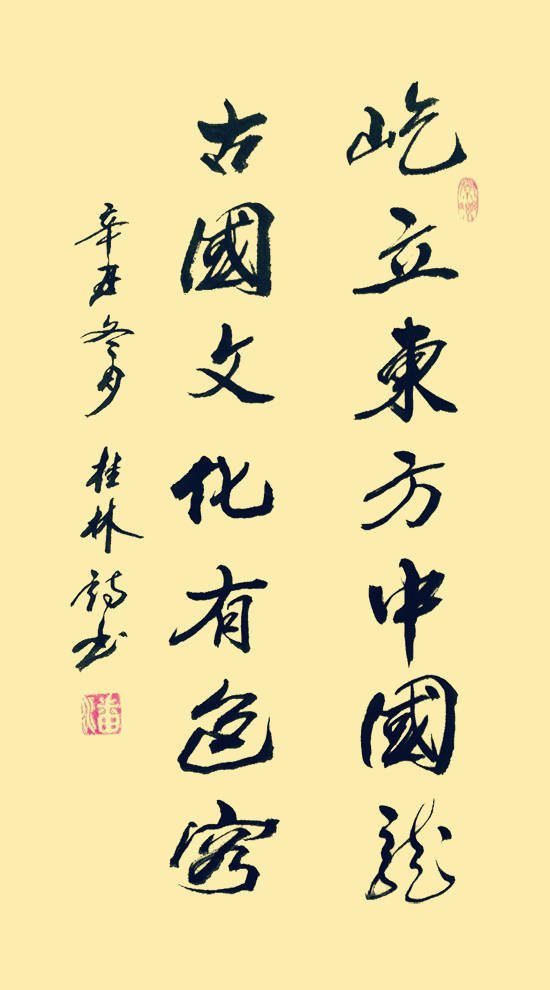 屹立東方中國龍
古國文化有色容
辛丑冬月 桂林詩书
潘